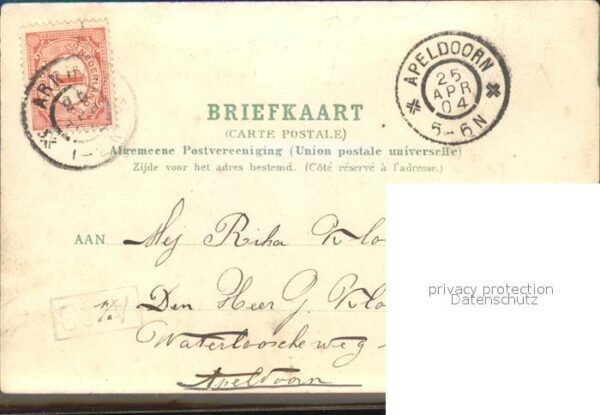 NEDERLAND
1
ARN
APELDOORN
25
APR
04
5-6N
BRIEFKAART
(CARTE POSTALE)
Algemeene Postvereeniging (Union postale universelle)
Zijde voor het adres bestemd. (Côté réservé à l'adresse.)
AAN Mej Rika Klo
Den Heer J. Klo
Waterloosche weg
Apeldoorn
privacy protection
Datenschutz